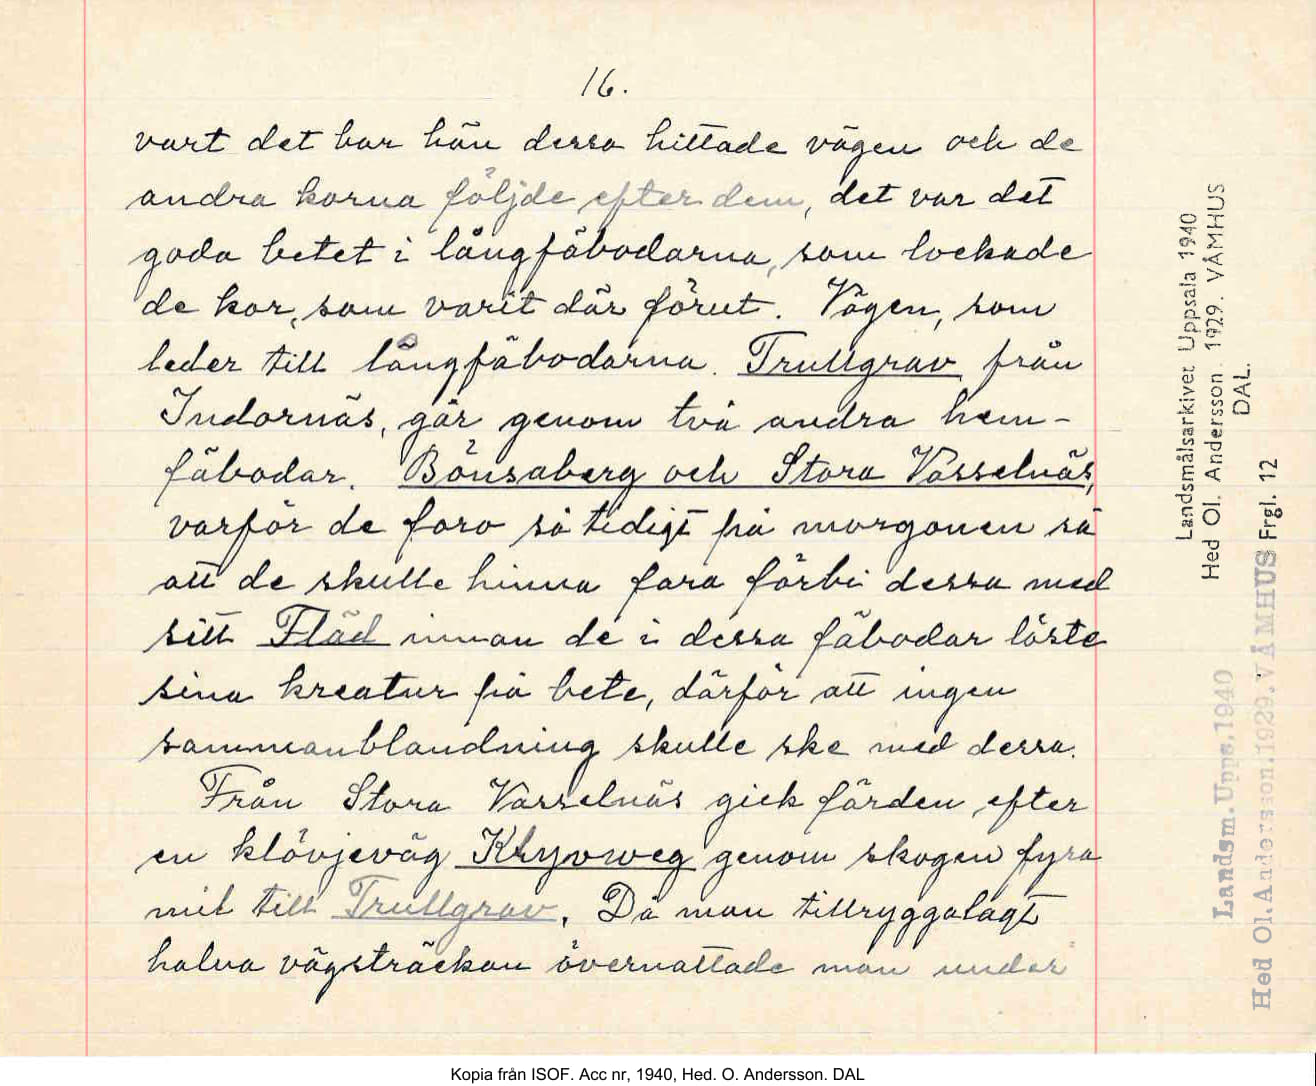 16.
vart det bar hän dessa hittade vägen och de
andra korna följde efter dem, det var det
goda betet i långfäbodarna, som lockade
de kor, som varit där förut. Vägen, som
leder till långfäbodarna. Trullgrav från
Indornäs, går genom två andra hem-
fäbodar. Bönsaberg och Stora Vasselnäs,
varför de foro så tidigt på morgonen så
att de skulle hinna fara förbi dessa med
sitt Fläd innan de i dessa fäbodar löste
sina kreatur på bete, därför att ingen
sammanblandning skulle ske med dessa.
Från Stora Vasselnäs gick färden efter
en klövjeväg Klyvweg genom skogen fyra
mil till Trullgrav. Då man tillryggalagt
halva vägsträckan övernattade man under
Landsmålsarkivet Uppsala 1940
Hed Ol. Andersson. 1929. VÅMHUS
DAL.
Frgl. 12
Landsm. Upps. 1940
Hed Ol. Andersson. 1929. VÅMHUS
Kopia från ISOF. Acc nr, 1940, Hed. O. Andersson. DAL